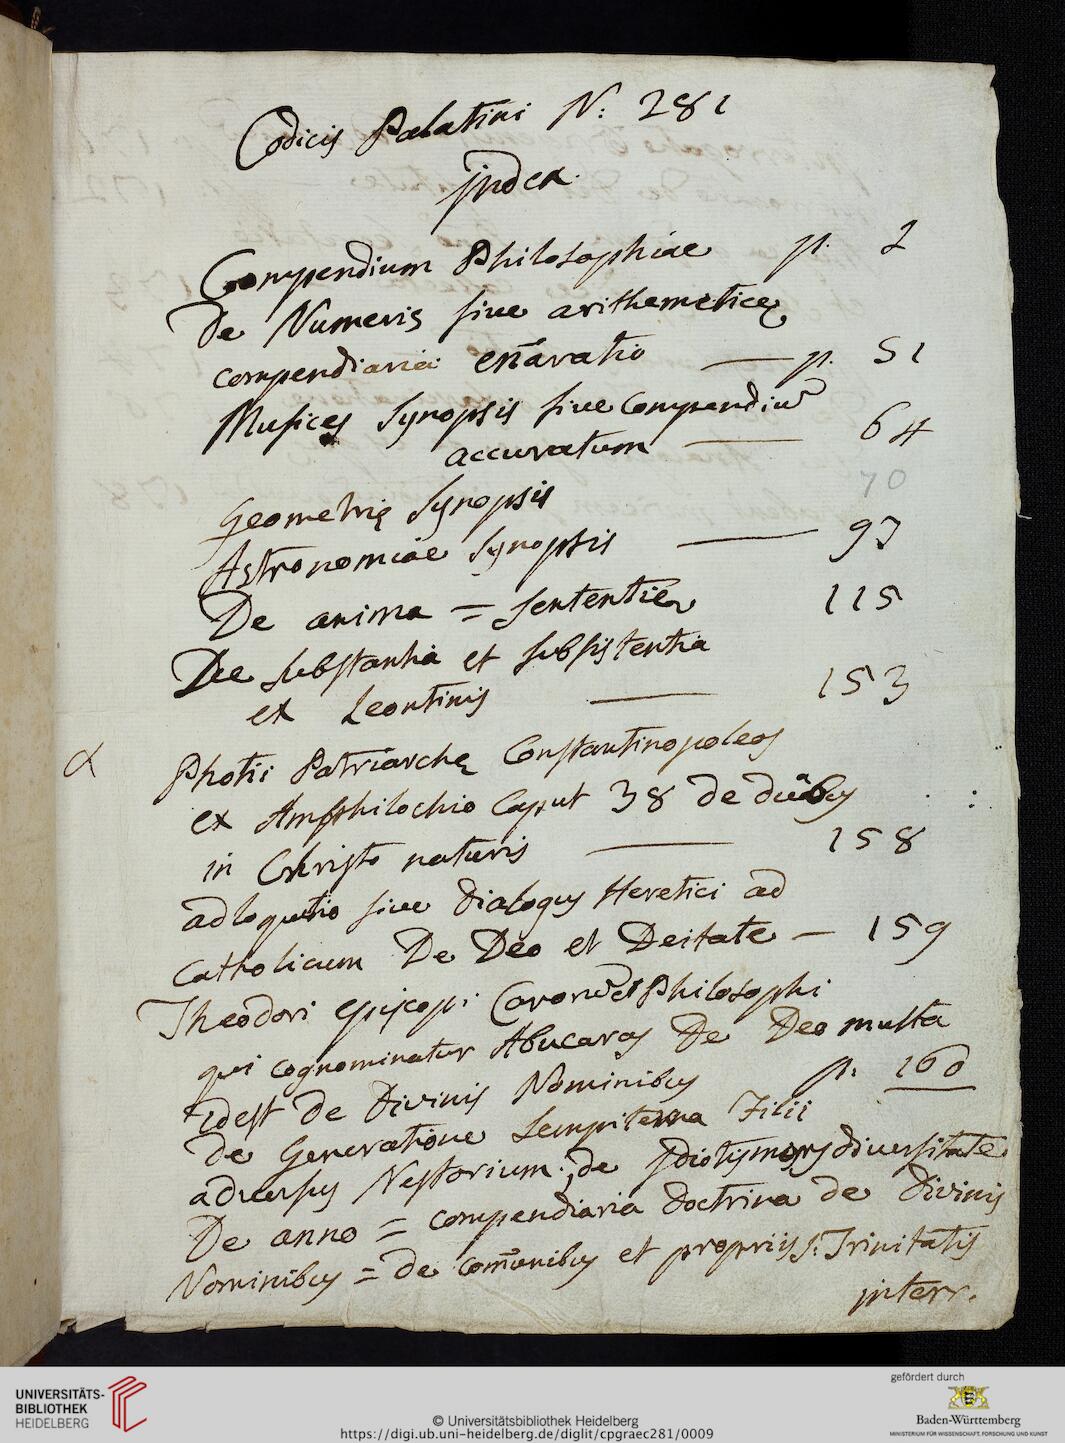 Codicis Palatini N: 281
jndex.
Compendium Philosophiae p. 2
De Numeris sive arithemeticę
compendiaria en̄aratio — p. 51
Musices Synopsis sive Compendiu᷃
accuratum — 64
Geometrię Synopsis 70
Astronomiae Synopsis — 93
De anima = sententiae 115
De substantia et subsistentia
ex Leontinis — 153
α Photii Patriarchę Constantinopoleos
ex Amphilochio Caput 38 de duābus
in Christo naturis — 158
adloqutio sive Dialogus Heretici ad
Catholicum De Deo et Deitate — 159
Theodori episcopi Philosophi
qui cognominatur Abucaras De Deo multa
idest de Divinis Nominibus p. 160
De Generatione Sempiterna Filii
adversus Nestorium; de diversitate
De anno = compendiaria doctrina de Divinis
Nominibus = de com̄unibus et propriis S. Trinitatis
interr.
UNIVERSITÄTS-
BIBLIOTHEK
HEIDELBERG
© Universitätsbibliothek Heidelberg
https://digi.ub.uni-heidelberg.de/diglit/cpgraec281/0009
gefördert durch
Baden-Württemberg
MINISTERIUM FÜR WISSENSCHAFT, FORSCHUNG UND KUNST